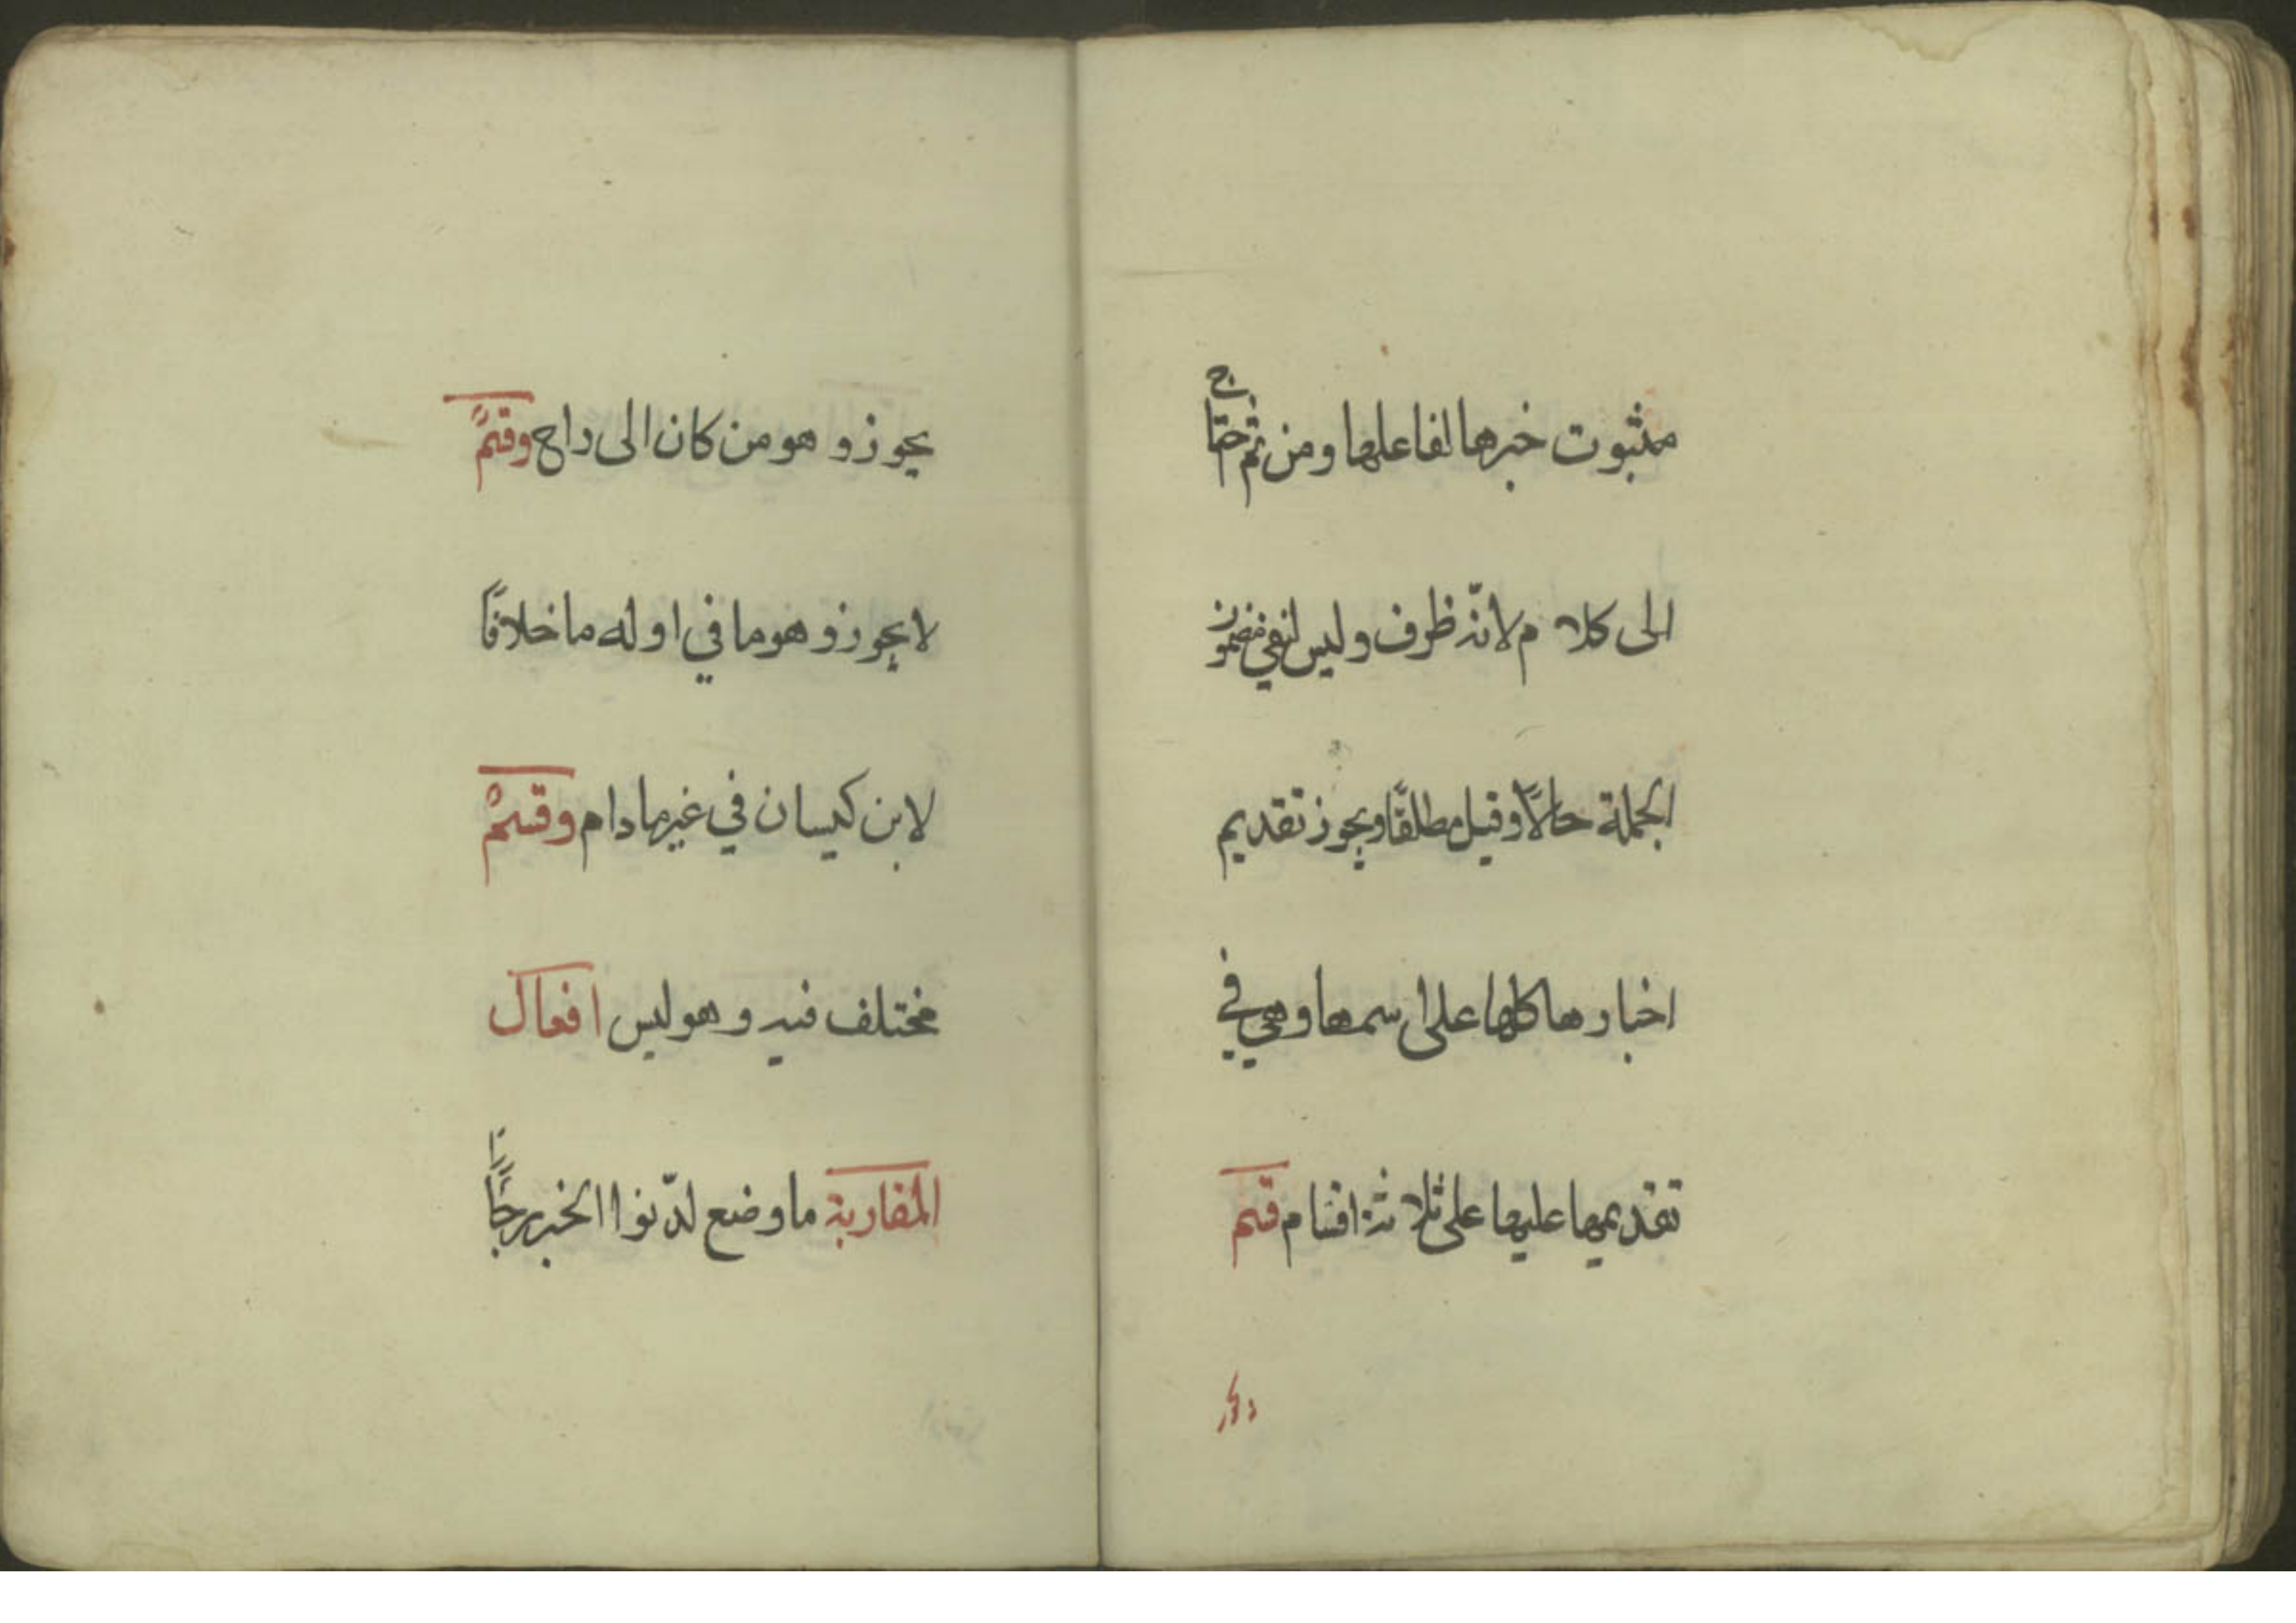 بثبوت خبرها لفاعلها ومن ثم احتاج
الى كلام لانه ظرف وليس لنفي مضمون
الجملة حالاً وقيل مطلقًا ويجوز تقديم
اخبارها كلها على اسمها وهي في
تقديمها عليها على ثلاثة اقسام قسم
يجوز وهو من كان الى راح وقسمٌ
لا يجوز وهو ما في اوله ما خلافًا
لابن كيسان في غير ما دام وقسمٌ
مختلف فيه وهو ليس افعال
المقاربة ما وضع لدّنوا الخبر رجاً